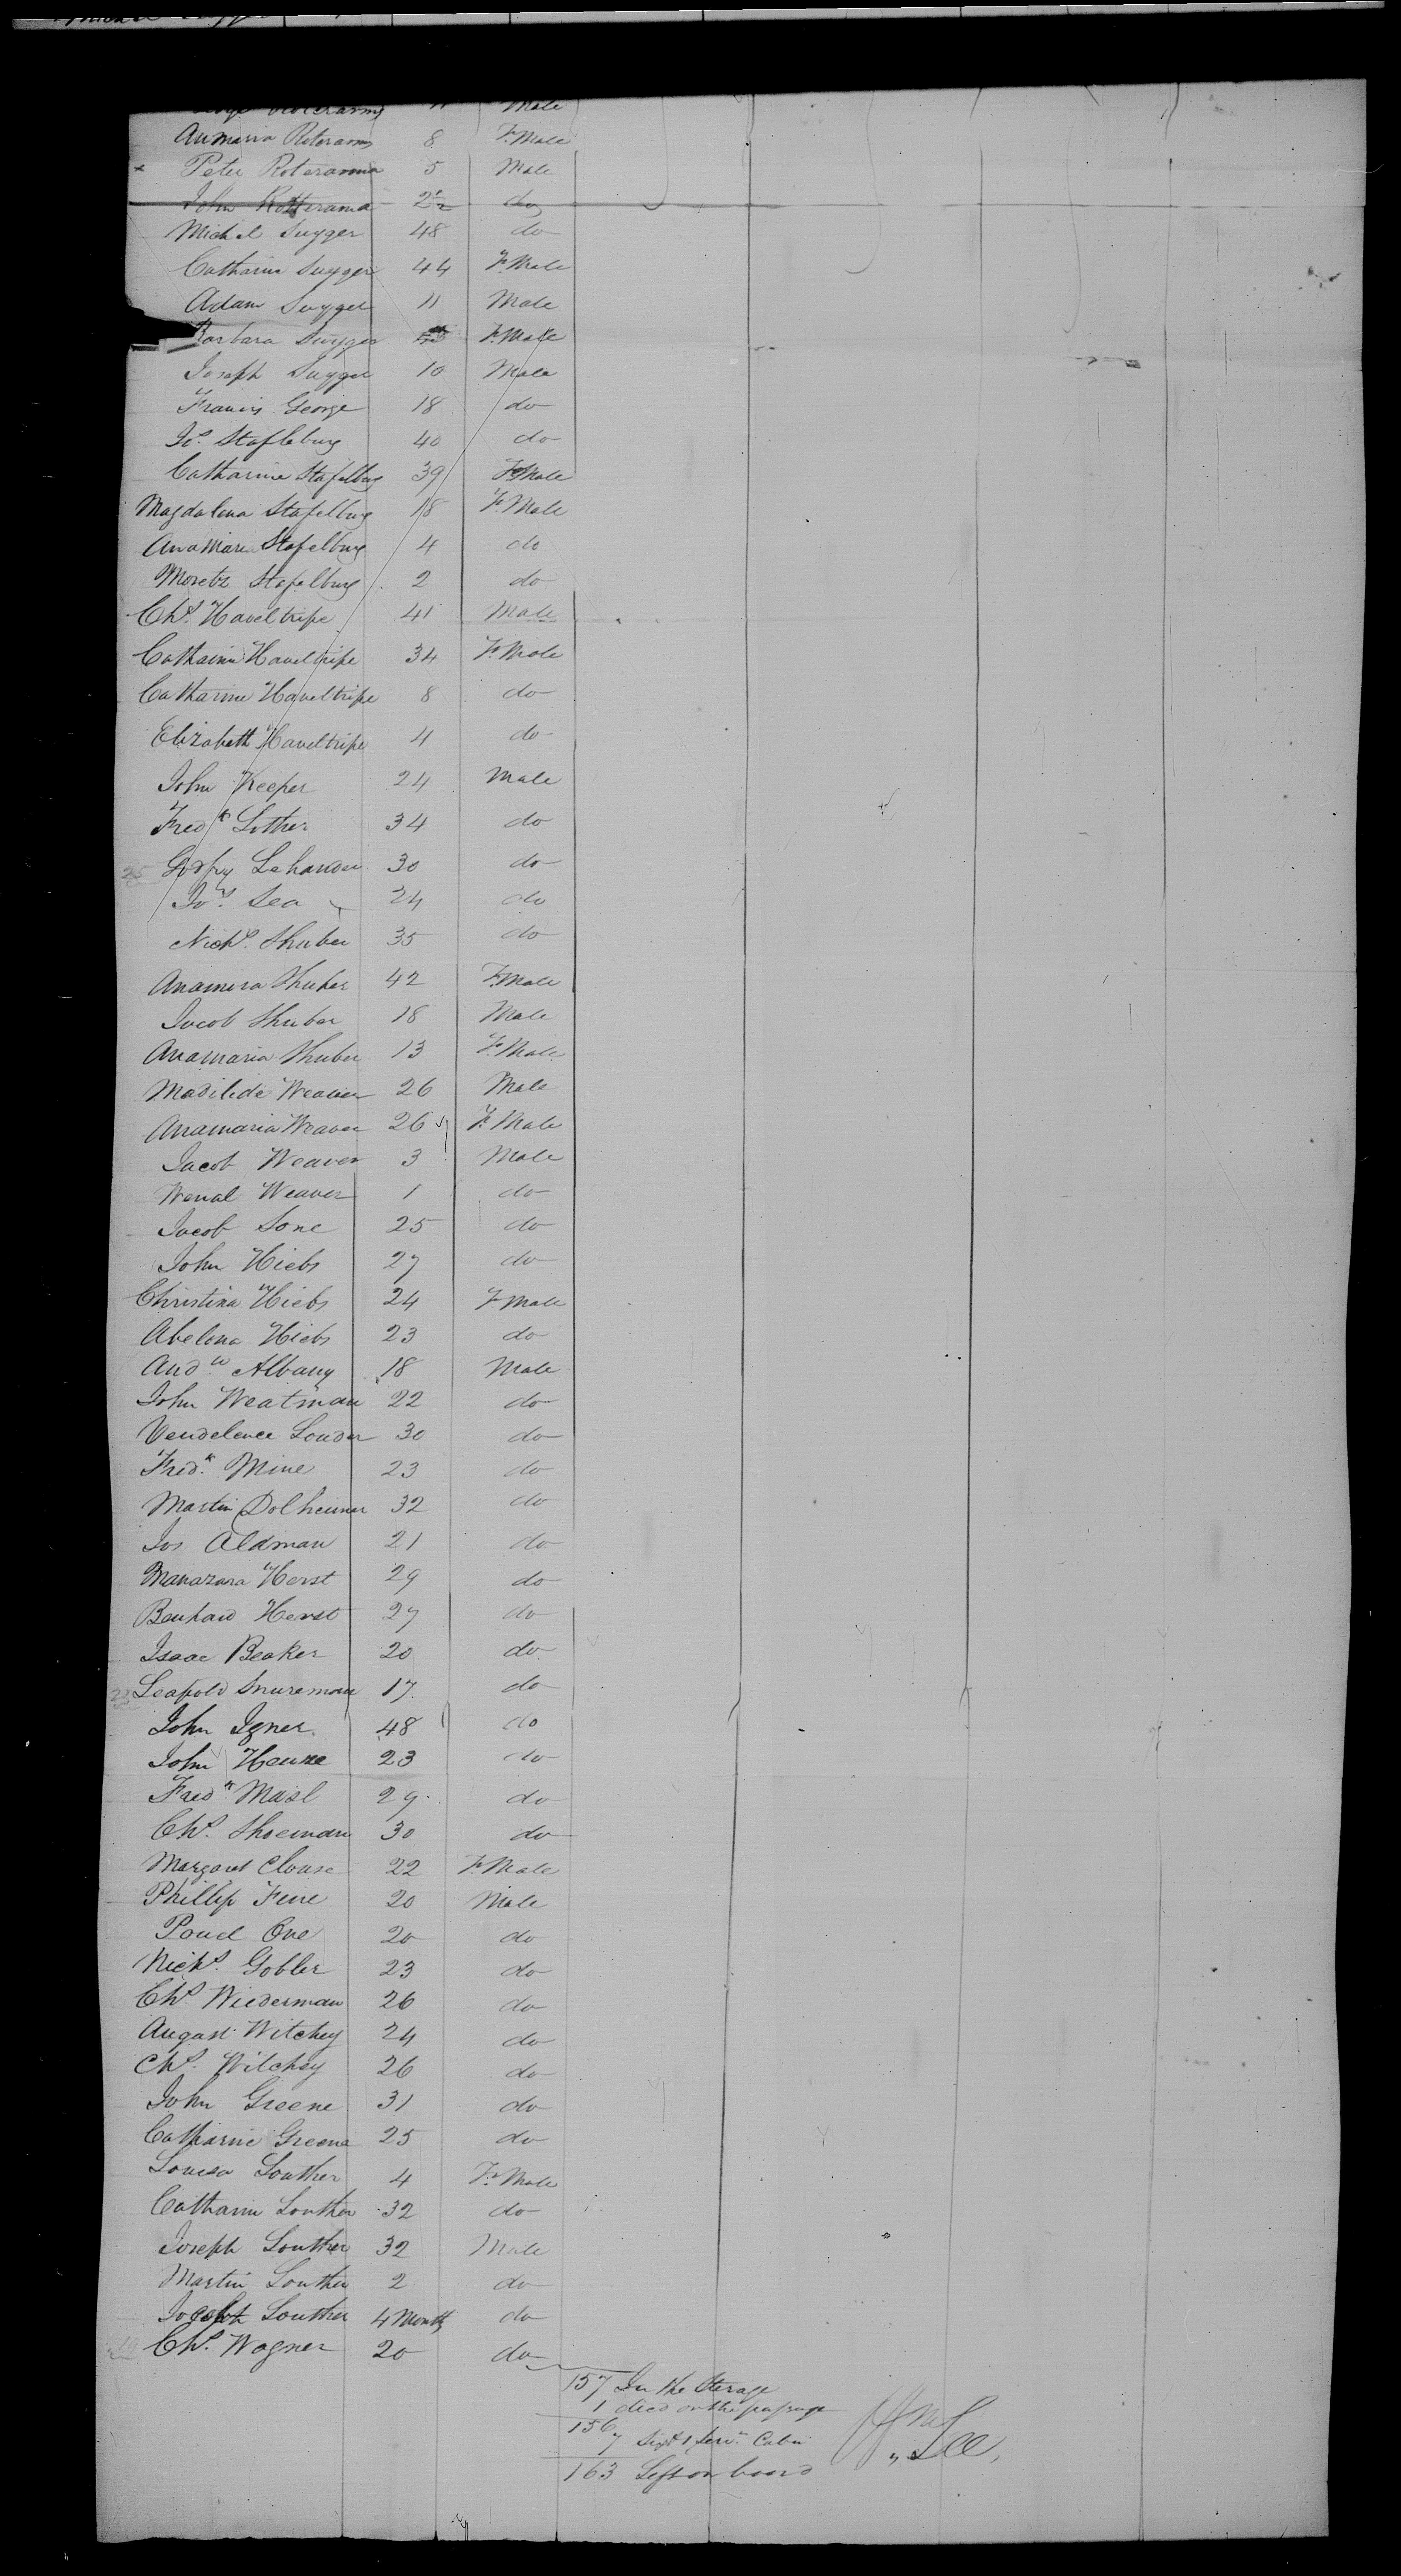 Male
Anmaria Roterams 8 F. Male
Peter Roterama 5 Male
John Rotterama 2½ do
Michel Suyger 48 do
Catharine Suyger 44 F. Male
Adam Suyger 11 Male
Barbara Suyger F. Male
Joseph Suyger 10 Male
Francis George 18 do
Jos. Stafleburg 40 do
Catharine Stafelburg 39 F. Male
Magdalena Stafelburg 18 F. Male
Anamaria Stafelburg 4 do
Moretz Stafelburg 2 do
Chs. Haveltripe 41 Male
Catharine Haveltripe 34 F. Male
Catharine Haveltripe 8 do
Elizabeth Haveltripe 4 do
John Keeper 24 Male
Fredk Lother 34 do
25 Gotfry Lehander 30 do
Jos. Sea 24 do
Nichs. Shuber 35 do
Anamera Shuber 42 F. Male
Jacob Shuber 18 Male
Anamaria Shuber 13 F. Male
Madilida Weaver 26 Male
Anamaria Weaver 26 F. Male
Jacob Weaver 3 Male
Wenal Weaver 1 do
Jacob Sone 25 do
John Hiebs 27 do
Christina Hiebs 24 F Male
Abelona Hiebs 23 do
Andw Albany 18 Male
John Weatman 22 do
Vendelence Louder 30 do
Fredk. Mine 23 do
Martin Dolheimer 32 do
Jos Aldman 21 do
Manazara Herst 29 do
Benhard Herst 27 do
Isaac Beaker 20 do
23 Leapold Snureman 17 do
John Izner 48 do
John Heuze 23 do
Fredk. Masl 29 do
Chs. Shoeman 30 do
Margaret Clouse 22 F. Male
Phillip Fene 20 Male
Poud One 20 do
Nichs. Gobler 23 do
Chs Wiederman 26 do
August Witchey 24 do
Chs. Witchey 26 do
John Greene 31 do
Catharine Greene 25 do
Louisa Louther 4 F. Male
Catharine Louther 32 do
Joseph Louther 32 Male
Martin Louther 2 do
Louther 4 Months do
Chs. Wagner 20 do
157 In the Sterage
1 died on the passage
156
7 1 Cabin
163 Left on board
Lee